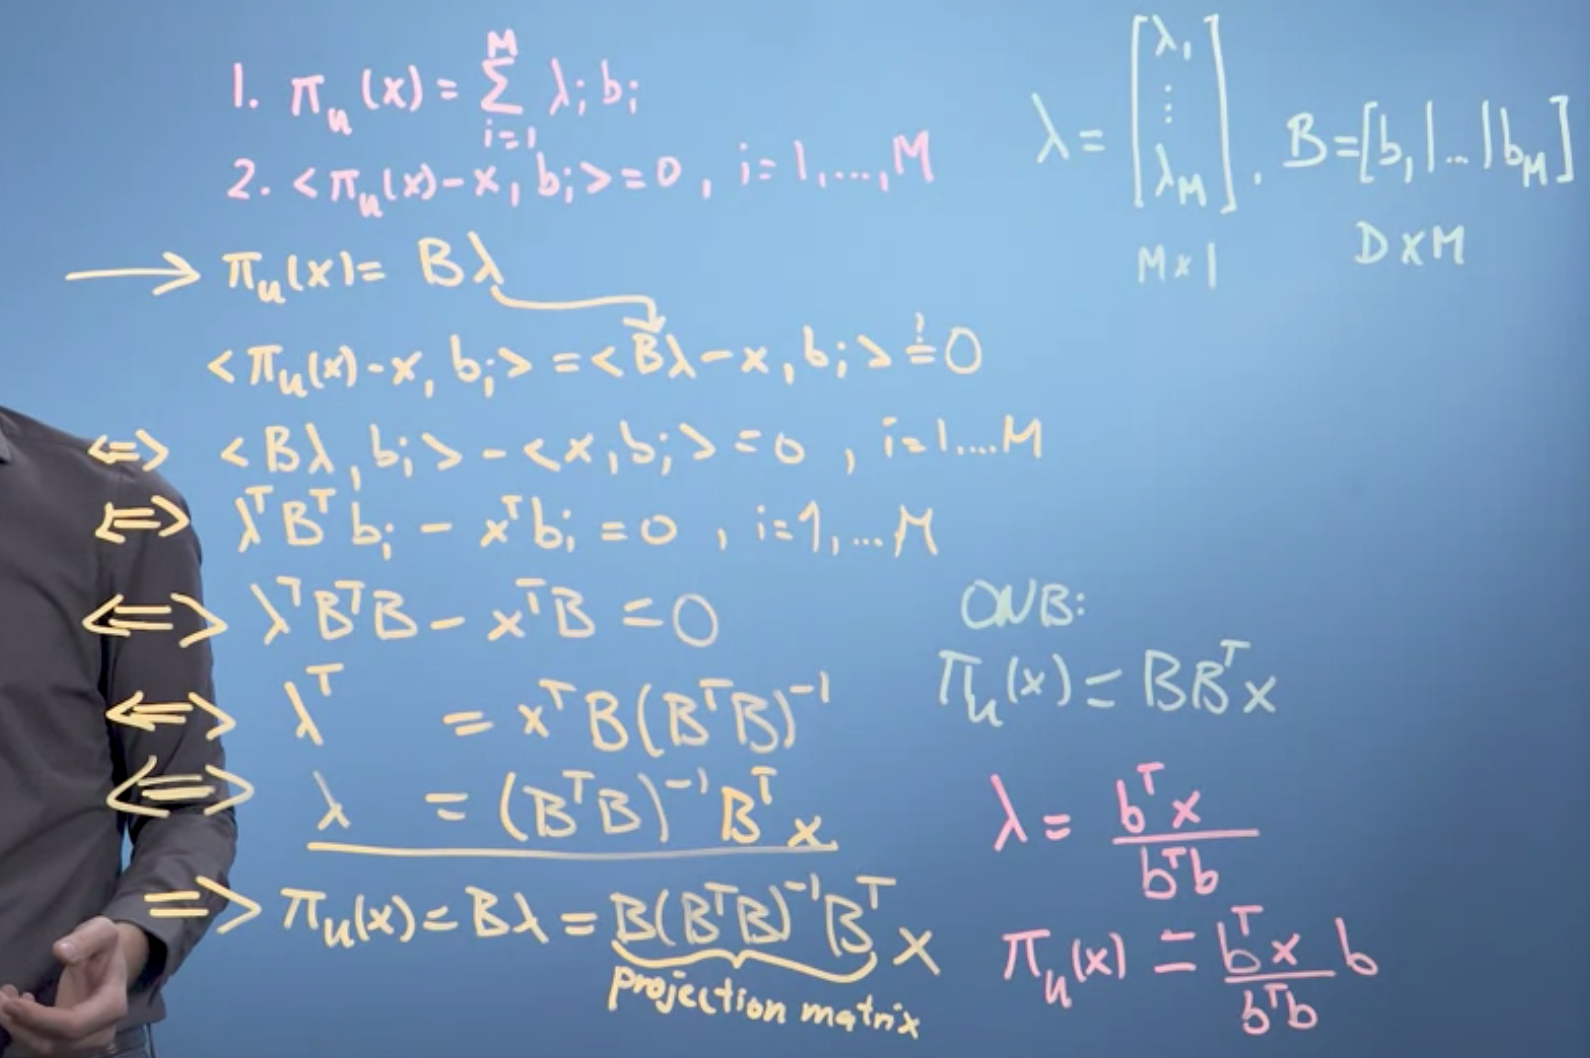 1. π_u(x) = Σ_{i=1}^{M} λ_i b_i
2. <π_u(x) - x, b_i> = 0, i=1,...,M
λ = [λ_1 ⋮ λ_M], B = [b_1|...|b_M]
M×1 D×M
→ π_u(x) = Bλ
<π_u(x) - x, b_i> = <Bλ - x, b_i> =^! 0
<=> <Bλ, b_i> - <x, b_i> = 0, i=1....M
<=> λ^T B^T b_i - x^T b_i = 0, i=1,...M
<=> λ^T B^T B - x^T B = 0
<=> λ^T = x^T B(B^T B)^{-1}
<=> λ = (B^T B)^{-1} B^T x
=> π_u(x) = Bλ = B(B^T B)^{-1} B^T x
projection matrix
ONB:
π_u(x) = BB^T x
λ = b^T x / b^T b
π_u(x) = b^T x / b^T b b